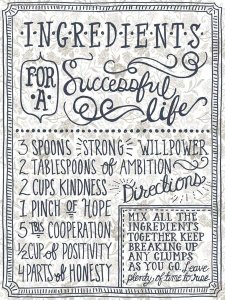 INGREDIENTS
FOR A
Successful
life
3 SPOONS STRONG WILLPOWER
2 TABLESPOONS of AMBITION
2 CUPS KINDNESS
1 PINCH of HOPE
Directions
5 TBS COOPERATION
1/2 CUP of POSITIVITY
4 PARTS of HONESTY
MIX ALL THE
INGREDIENTS
TOGETHER KEEP
BREAKING UP
ANY CLUMPS
AS YOU GO. Leave
plenty of time to rise